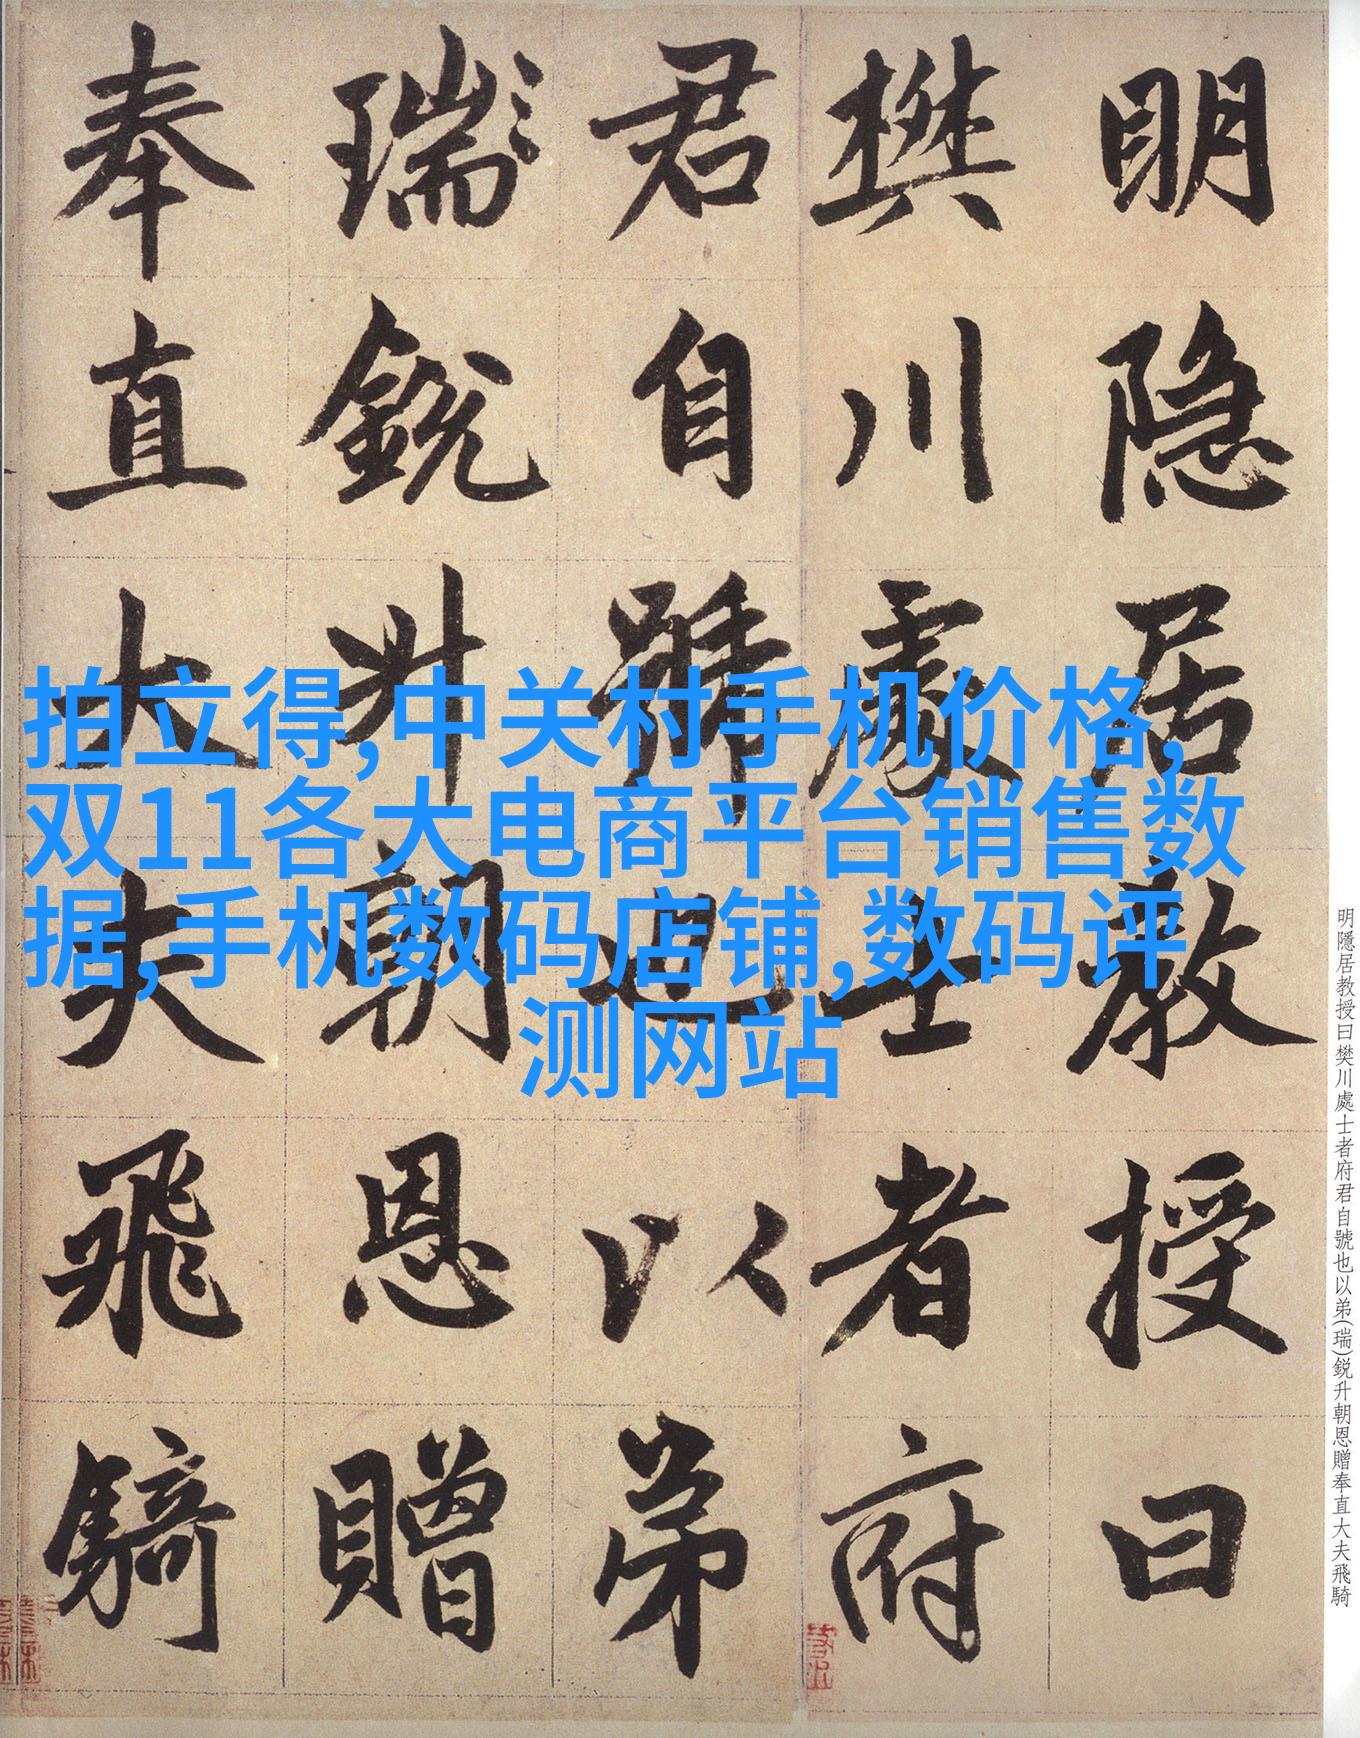 明隐居教授曰
樊川處士者府
君自號也以弟
瑞銳升朝恩贈
奉直大夫飛騎
拍立得,中关村手机价格,
双11各大电商平台销售数
据,手机数码店铺,数码评
测网站
明隱居教授曰樊川處士者府君自號也以弟(瑞)鋭升朝恩贈奉直大夫飛騎